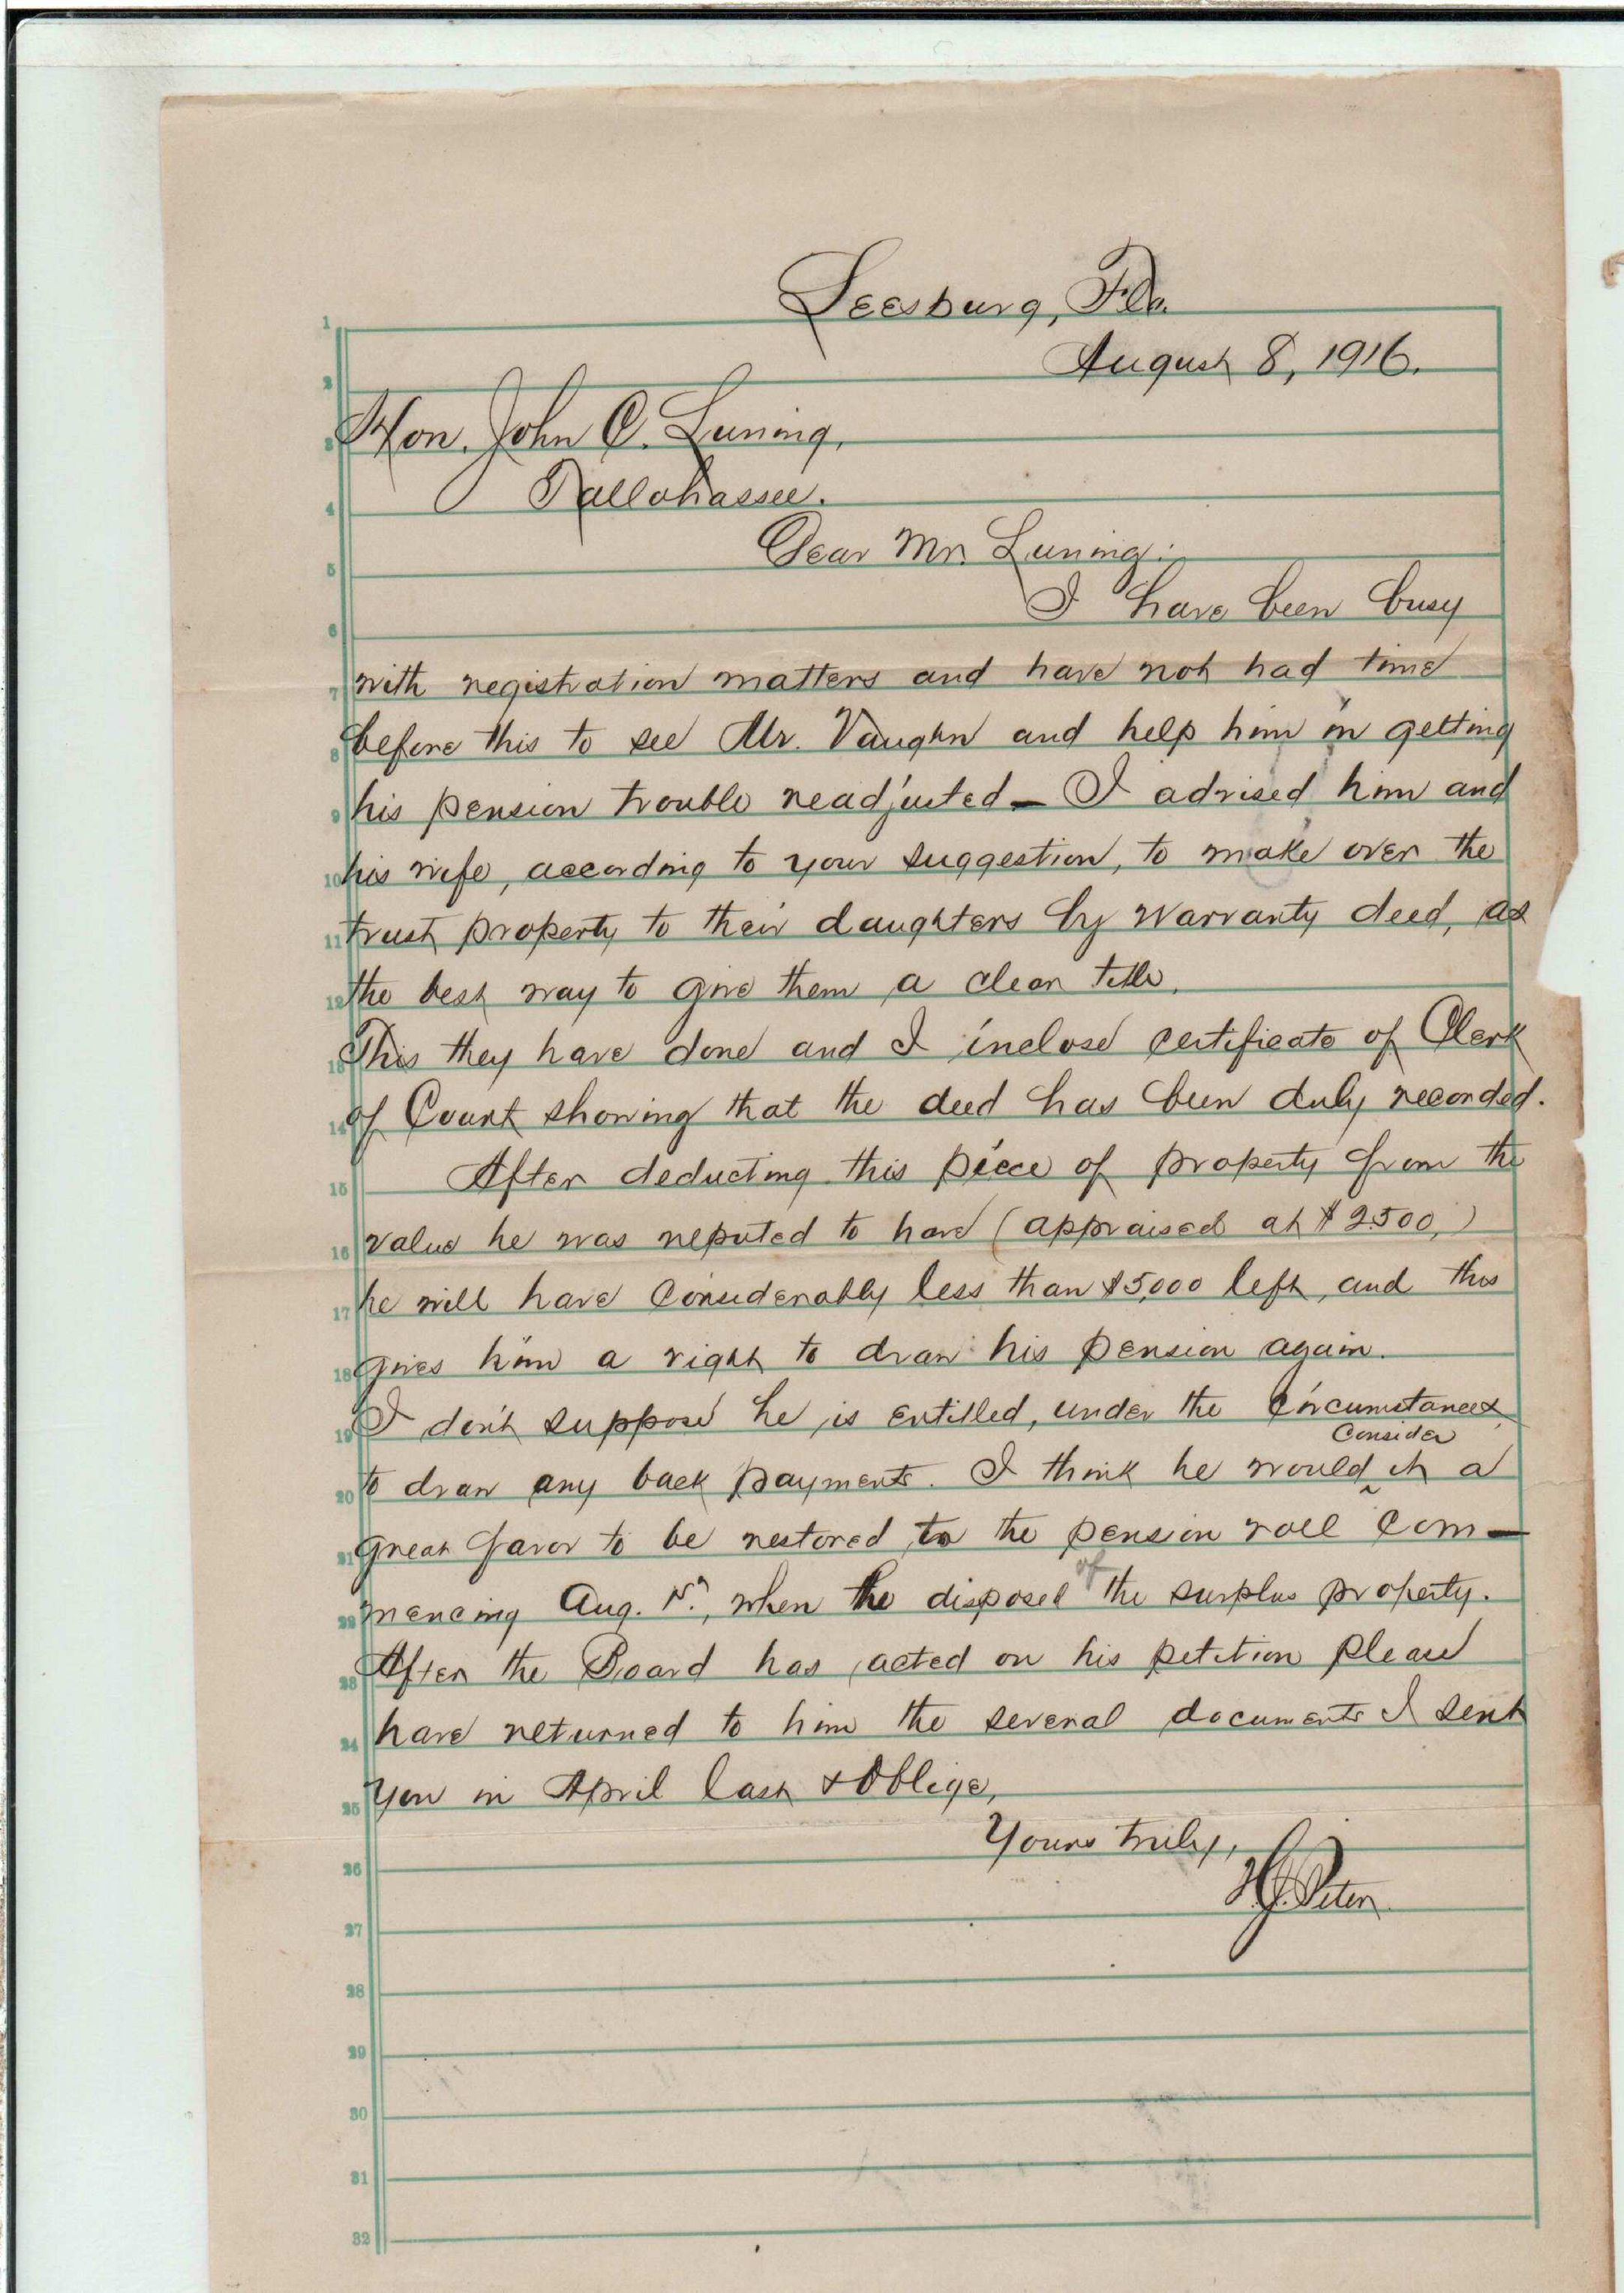 Leesburg, Fla.
1
August 8, 1916.
2
Hon. John C. Luning,
3
Tallahassee.
4
Dear Mr. Luning:
5
I have been busy
6
7 with registration matters and have not had time
8 before this to see Mr. Vaughn and help him in getting
9 his pension trouble readjusted — I advised him and
10 his wife, according to your suggestion, to make over the
11 trust property to their daughters by warranty deed, as
12 the best way to give them a clear title.
13 This they have done and I inclose certificate of Clerk
14 of Court showing that the deed has been duly recorded.
15 After deducting this piece of property from the
16 value he was reputed to have (appraised at $2500,)
17 he will have considerably less than $5,000 left, and this
18 gives him a right to draw his pension again.
19 I don't suppose he is entitled, under the circumstances,
consider
20 to draw any back payments. I think he would ^ it a
21 great favor to be restored to the pension roll com-
of
22 mencing Aug. 1st, when he disposed the surplus property.
23 After the Board has acted on his petition please
24 have returned to him the several documents I sent
25 you in April last & oblige,
Yours truly,
26
H. J. Peter
27
28
29
30
31
32